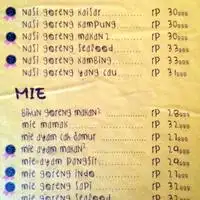 nasi goreng kaisar rp 30,000
nasi goreng kampung rp 30,000
nasi goreng makan2 rp 30,000
nasi goreng seafood rp 33,000
nasi goreng kambing rp 33,000
nasi goreng yang cau rp 31,000
MIE
bihun goreng makan2 rp 28,000
mie mamak rp 32,000
mie ayam cah jamur rp 21,000
mie ayam makan2 rp 29,000
mie ayam pangsit rp 29,000
mie goreng indo rp 21,000
mie goreng sapi rp 32,000
mie goreng seafood rp